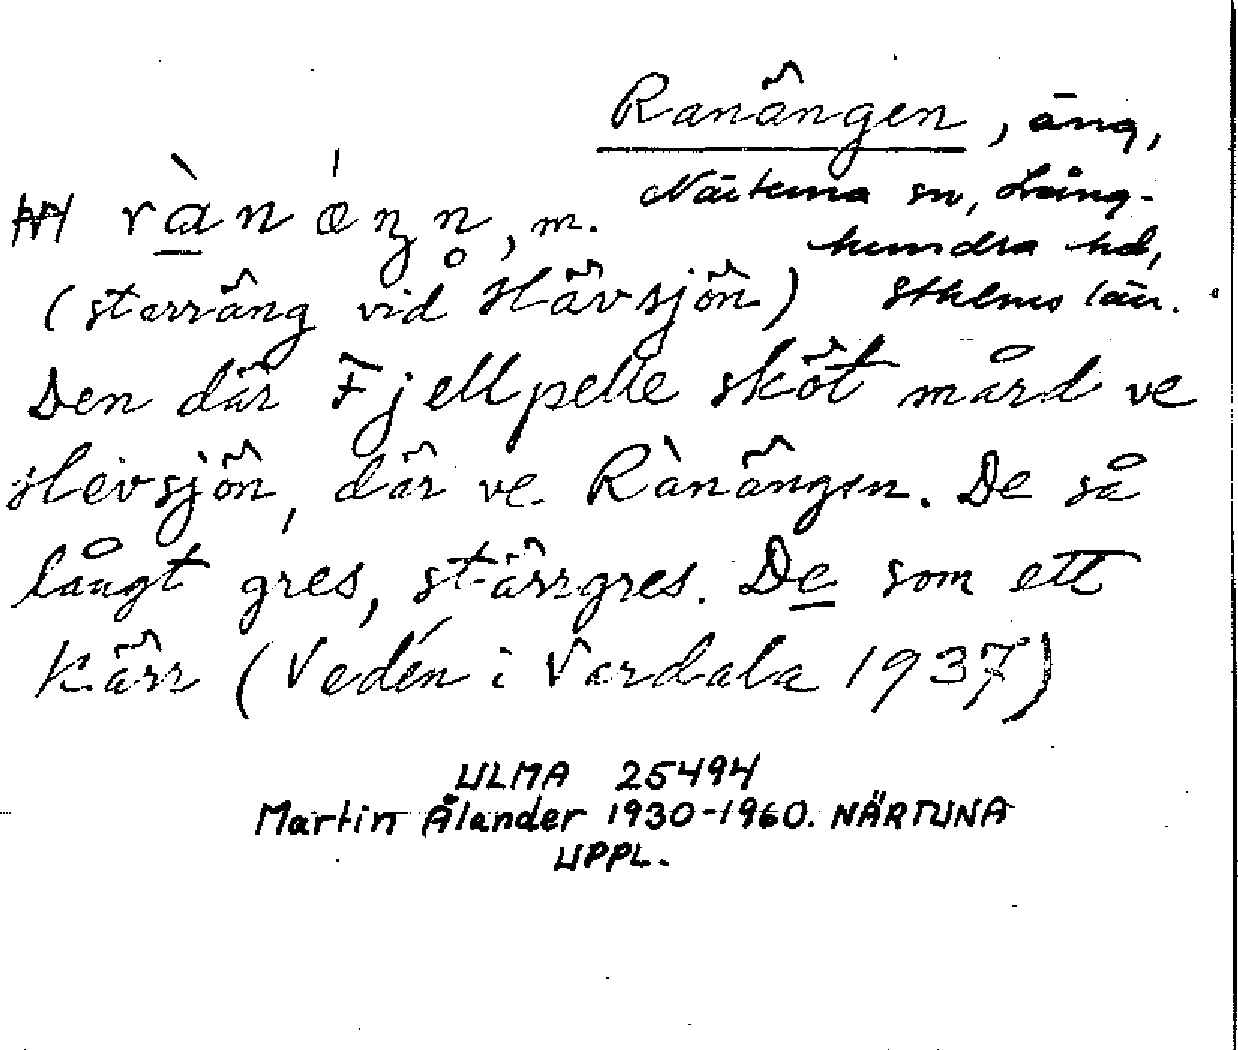 Ranängen, äng,
Närtuna sn, Lång-
hundra hd,
Sthlms län.
rànæŋn̥, m.
(starräng vid Hävsjön)
Den där Fjellpelle sköt mård ve
Hevsjön, där ve Rànängen. De så
långt gres, stärrgres. De som ett
kärr (Vedén i Vardala 1937)
ULMA 25494
Martin Ålander 1930-1960. NÄRTUNA
UPPL.